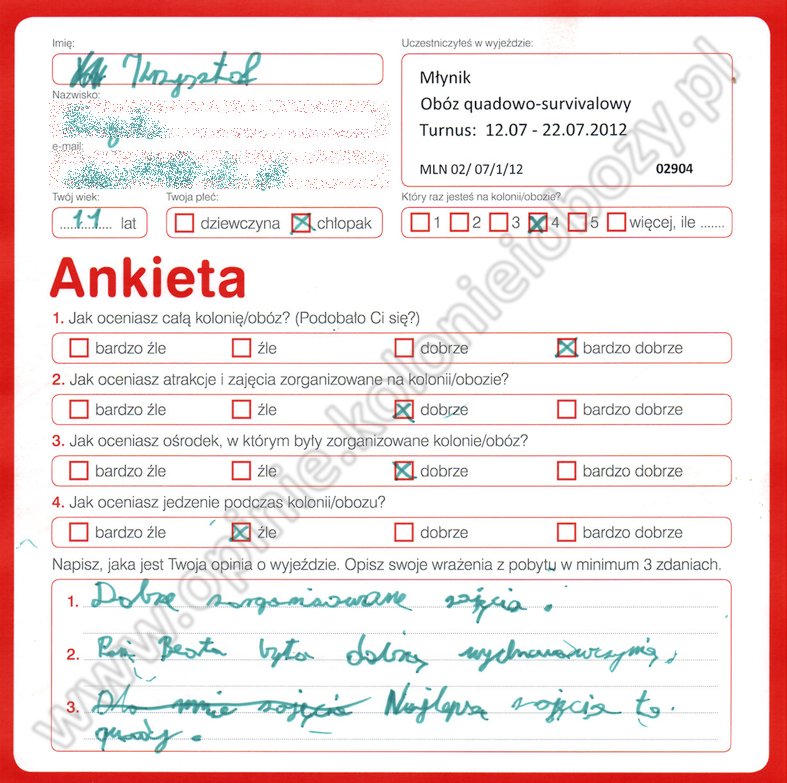 Imię:
Krzysztof
Uczestniczyłeś w wyjeździe:
Młynik
Obóz quadowo-survivalowy
Turnus: 12.07 - 22.07.2012
MLN 02/ 07/1/12 02904
Nazwisko:
e-mail:
Twój wiek:
11 lat
Twoja płeć:
dziewczyna chłopak
Który raz jesteś na kolonii/obozie?
1 2 3 4 5 więcej, ile .......
Ankieta
1. Jak oceniasz całą kolonię/obóz? (Podobało Ci się?)
bardzo źle źle dobrze bardzo dobrze
2. Jak oceniasz atrakcje i zajęcia zorganizowane na kolonii/obozie?
bardzo źle źle dobrze bardzo dobrze
3. Jak oceniasz ośrodek, w którym były zorganizowane kolonie/obóz?
bardzo źle źle dobrze bardzo dobrze
4. Jak oceniasz jedzenie podczas kolonii/obozu?
bardzo źle źle dobrze bardzo dobrze
Napisz, jaka jest Twoja opinia o wyjeździe. Opisz swoje wrażenia z pobytu w minimum 3 zdaniach.
1. Dobrze zorganizowane zajęcia.
2. Pani Beata była dobrą wychowawczynią,
3. Dla mnie zajęcia Najlepsze zajęcia to
quady.
www.opinie.kolonieiobozy.pl